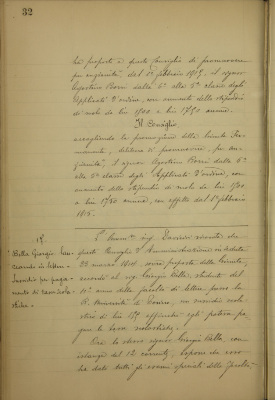 32
ha proposto a questo Consiglio di promuovere
per anzianità, dal 1° febbraio 1915, il signor
Agostino Borri dalla 6ª alla 5ª classe degli
Applicati d'ordine, con aumento dello stipendio
di ruolo da lire 1500 a lire 1750 annue.
Il Consiglio,
accogliendo la proposizione della Giunta
, delibera di promuovere, per
anzianità, il signor Agostino Borri dalla 6ª
alla 5ª classe degli Applicati d'ordine, con
aumento dello stipendio di ruolo da lire 1500
a lire 1750 annue, con effetto dal 1° febbraio
1915.
18.
Bella Giorgio
in lettere.
Sussidio per paga-
mento di tasse
L' ing. ricorda che
questo Consiglio d'Amministrazione in seduta
23 marzo 1914, sopra proposta della Giunta,
al sig. Giorgio Bella, studente del
anno della facoltà di lettere presso la
R. Università di , un sussidio
di lire 157 affinché egli potesse pa-
gare le tasse
Ora lo stesso signor Giorgio Bella, con
istanza del 12 corrente, espone che
ha dato tutti gli esami speciali della facoltà